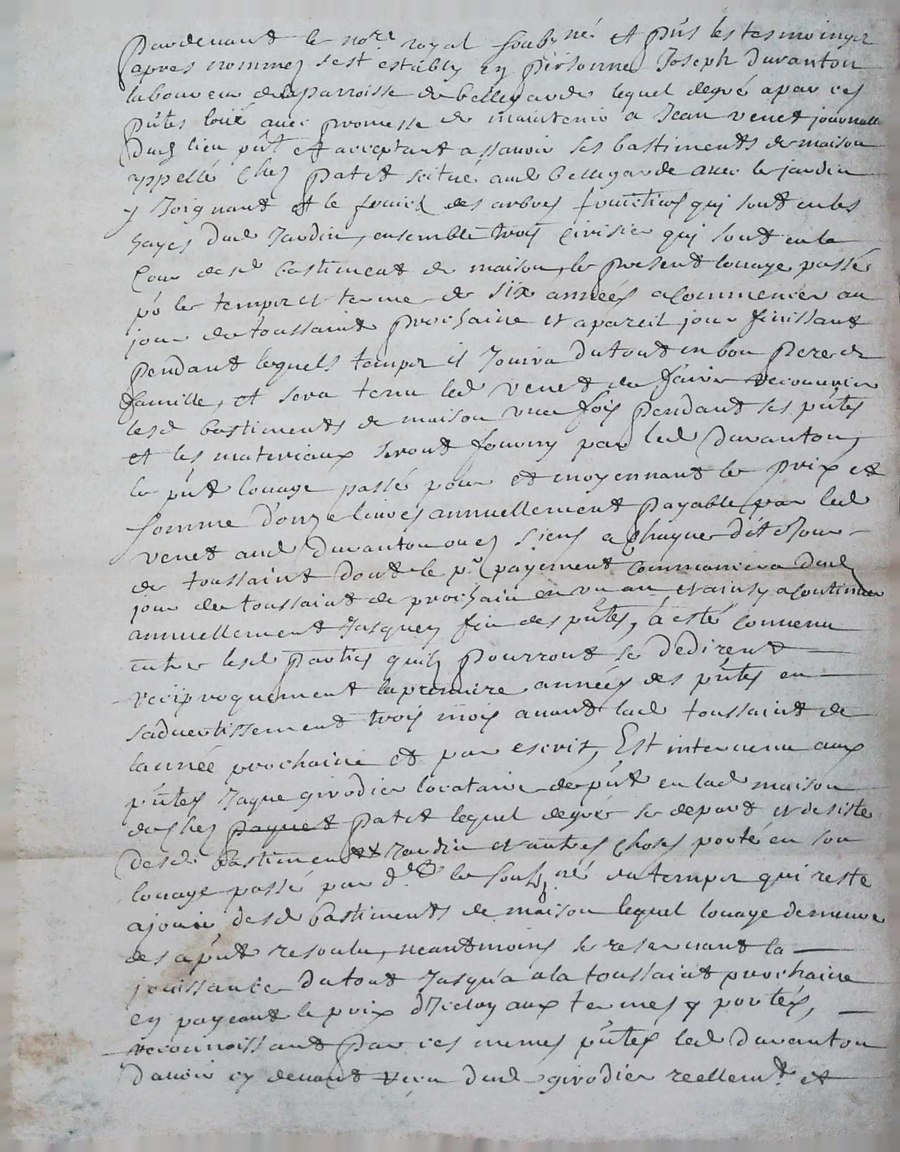 Pardevant le nore royal soubné et pñs les tesmoings
apres nommez s'est estably en personne Joseph Duranton
laboureur de la parroisse de bellegarde lequel de gré a par ces
pñtes loüé avec promesse de maintenir a Jean Venet journall
dud lieu pñt et acceptant assavoir ses bastiments de maison
appellé chez Patet scitué aud bellegarde avec le jardin
y Joignant et le fruict des arbres fruictiers qui sont en les
hayes dud Jardin, ensemble trois cirisier qui sont en la
Cour desd bastiment de maison, le present louage passé
po le temps et terme de six années a Commencer au
jour de toussaint prochaine et a pareil jour finissant
pendant lequels temps il Jouira du tout en bon pere de
famille, et sera tenu led Venet de faire recouvrir
lesd bastiments de maison une fois pendant ses pñtes
et les materiaux seront fourny par led Duranton,
le pñt louage passé pour et moyennant le prix et
somme d'onze livres annuellement payable par led
Venet aud Duranton ou es siens a chaque dit Jour
de toussaint dont le pr payement Commancera dud
jour de toussaint de prochain en un an et ainsy a Continuer
annuellement Jusques fin des pñtes, a esté Convenu
entre lesd parties quils pourront se dedirent
reciproquement la premiere années des pñtes en
s'advertissement trois mois avant lad toussaint de
lannée prochaine et par escrit, Est intervenu aux
pñtes Jaque girodier locataire de pñt en lad maison
de chez paquet Patet lequel de gré se depart et desiste
desd bastiments Jardin et autres choses porté en son
louage passé par d.t le soubné du temps qui reste
a jouir desd bastiments de maison lequel louage demeure
des a pñt resoulu, neantmoins se reservant la
jouissance du tout Jusqu'a a la toussaint prochaine
en payant le prix d'Iceluy aux termes y portés,
reconnoissant par ces mimes pñtes led Duranton
d'avoir cy devant reçu dud girodier reellemt et